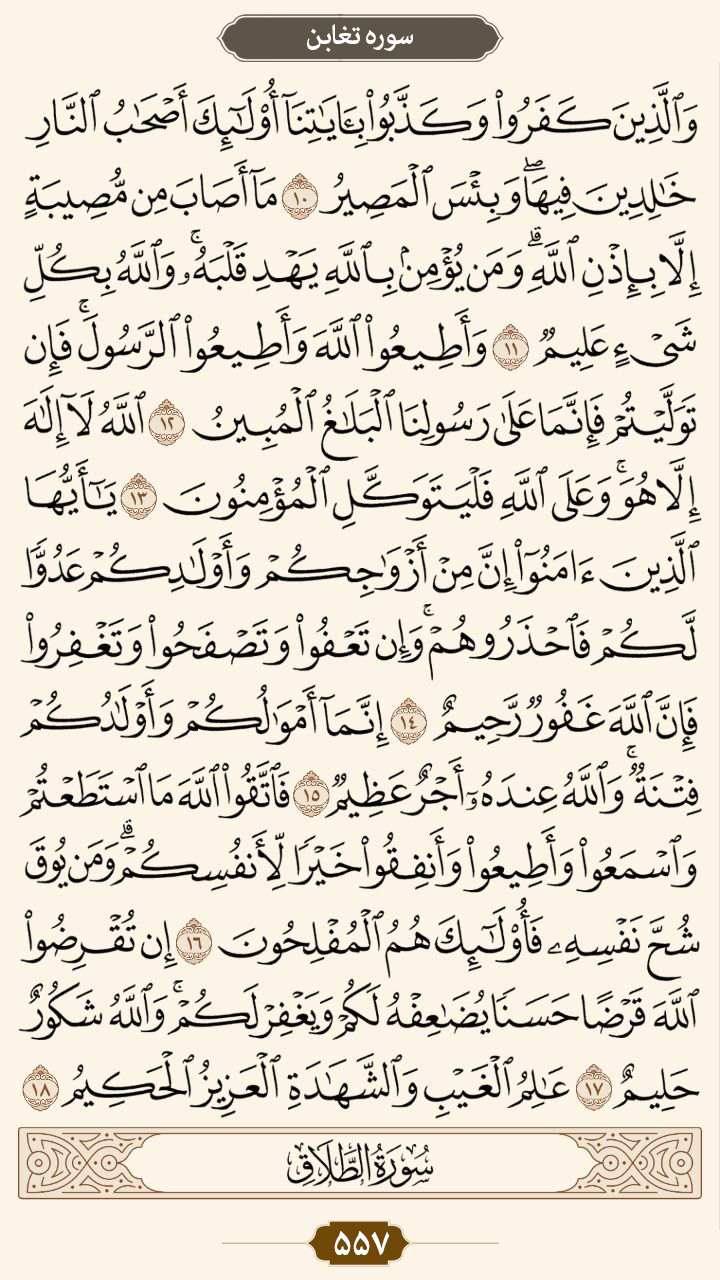 سوره تغابن
وَٱلَّذِينَ كَفَرُوا۟ وَكَذَّبُوا۟ بِـَٔايَـٰتِنَآ أُو۟لَـٰٓئِكَ أَصْحَـٰبُ ٱلنَّارِ
خَـٰلِدِينَ فِيهَاۖ وَبِئْسَ ٱلْمَصِيرُ ١٠ مَآ أَصَابَ مِن مُّصِيبَةٍ
إِلَّا بِإِذْنِ ٱللَّهِۗ وَمَن يُؤْمِنۢ بِٱللَّهِ يَهْدِ قَلْبَهُۥۚ وَٱللَّهُ بِكُلِّ
شَىْءٍ عَلِيمٌ ١١ وَأَطِيعُوا۟ ٱللَّهَ وَأَطِيعُوا۟ ٱلرَّسُولَۚ فَإِن
تَوَلَّيْتُمْ فَإِنَّمَا عَلَىٰ رَسُولِنَا ٱلْبَلَـٰغُ ٱلْمُبِينُ ١٢ ٱللَّهُ لَآ إِلَـٰهَ
إِلَّا هُوَۚ وَعَلَى ٱللَّهِ فَلْيَتَوَكَّلِ ٱلْمُؤْمِنُونَ ١٣ يَـٰٓأَيُّهَا
ٱلَّذِينَ ءَامَنُوٓا۟ إِنَّ مِنْ أَزْوَٰجِكُمْ وَأَوْلَـٰدِكُمْ عَدُوًّا
لَّكُمْ فَٱحْذَرُوهُمْۚ وَإِن تَعْفُوا۟ وَتَصْفَحُوا۟ وَتَغْفِرُوا۟
فَإِنَّ ٱللَّهَ غَفُورٌ رَّحِيمٌ ١٤ إِنَّمَآ أَمْوَٰلُكُمْ وَأَوْلَـٰدُكُمْ
فِتْنَةٌۚ وَٱللَّهُ عِندَهُۥٓ أَجْرٌ عَظِيمٌ ١٥ فَٱتَّقُوا۟ ٱللَّهَ مَا ٱسْتَطَعْتُمْ
وَٱسْمَعُوا۟ وَأَطِيعُوا۟ وَأَنفِقُوا۟ خَيْرًا لِّأَنفُسِكُمْۗ وَمَن يُوقَ
شُحَّ نَفْسِهِۦ فَأُو۟لَـٰٓئِكَ هُمُ ٱلْمُفْلِحُونَ ١٦ إِن تُقْرِضُوا۟
ٱللَّهَ قَرْضًا حَسَنًا يُضَـٰعِفْهُ لَكُمْ وَيَغْفِرْ لَكُمْۚ وَٱللَّهُ شَكُورٌ
حَلِيمٌ ١٧ عَـٰلِمُ ٱلْغَيْبِ وَٱلشَّهَـٰدَةِ ٱلْعَزِيزُ ٱلْحَكِيمُ ١٨
سُورَةُ الطَّلَاقِ
۵۵۷